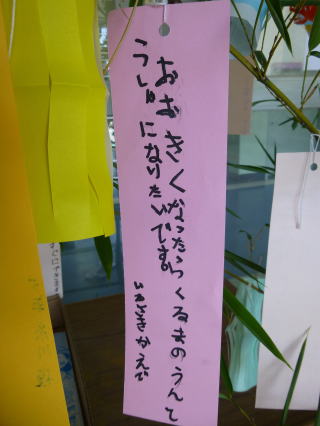 おおきくなったらくるまのうんて
うしゅになりたいです。
かえで